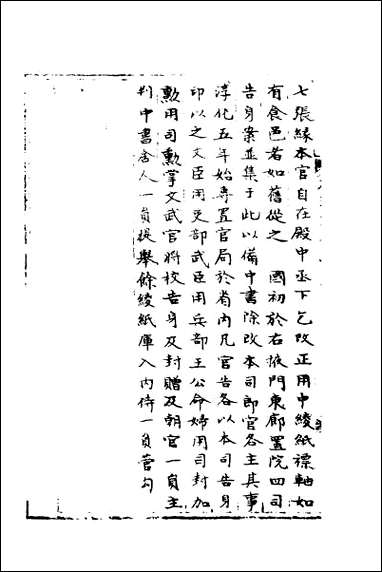 七張緣本官自在殿中丞下乞改正用中綾紙褾軸如
有食邑者如舊從之　國初於右掖門東廊置院四司
告身案並集于此以備中書除改本司郎官各主其事
淳化五年始專置官局於省内凡官告各以本司告身
印以之文臣用吏部武臣用兵部王公命婦用司封加
勲用司勲掌文武官將校告身及封贈及朝官一員主
判中書舍人一員提舉餘綾紙庫入内侍一員管勾